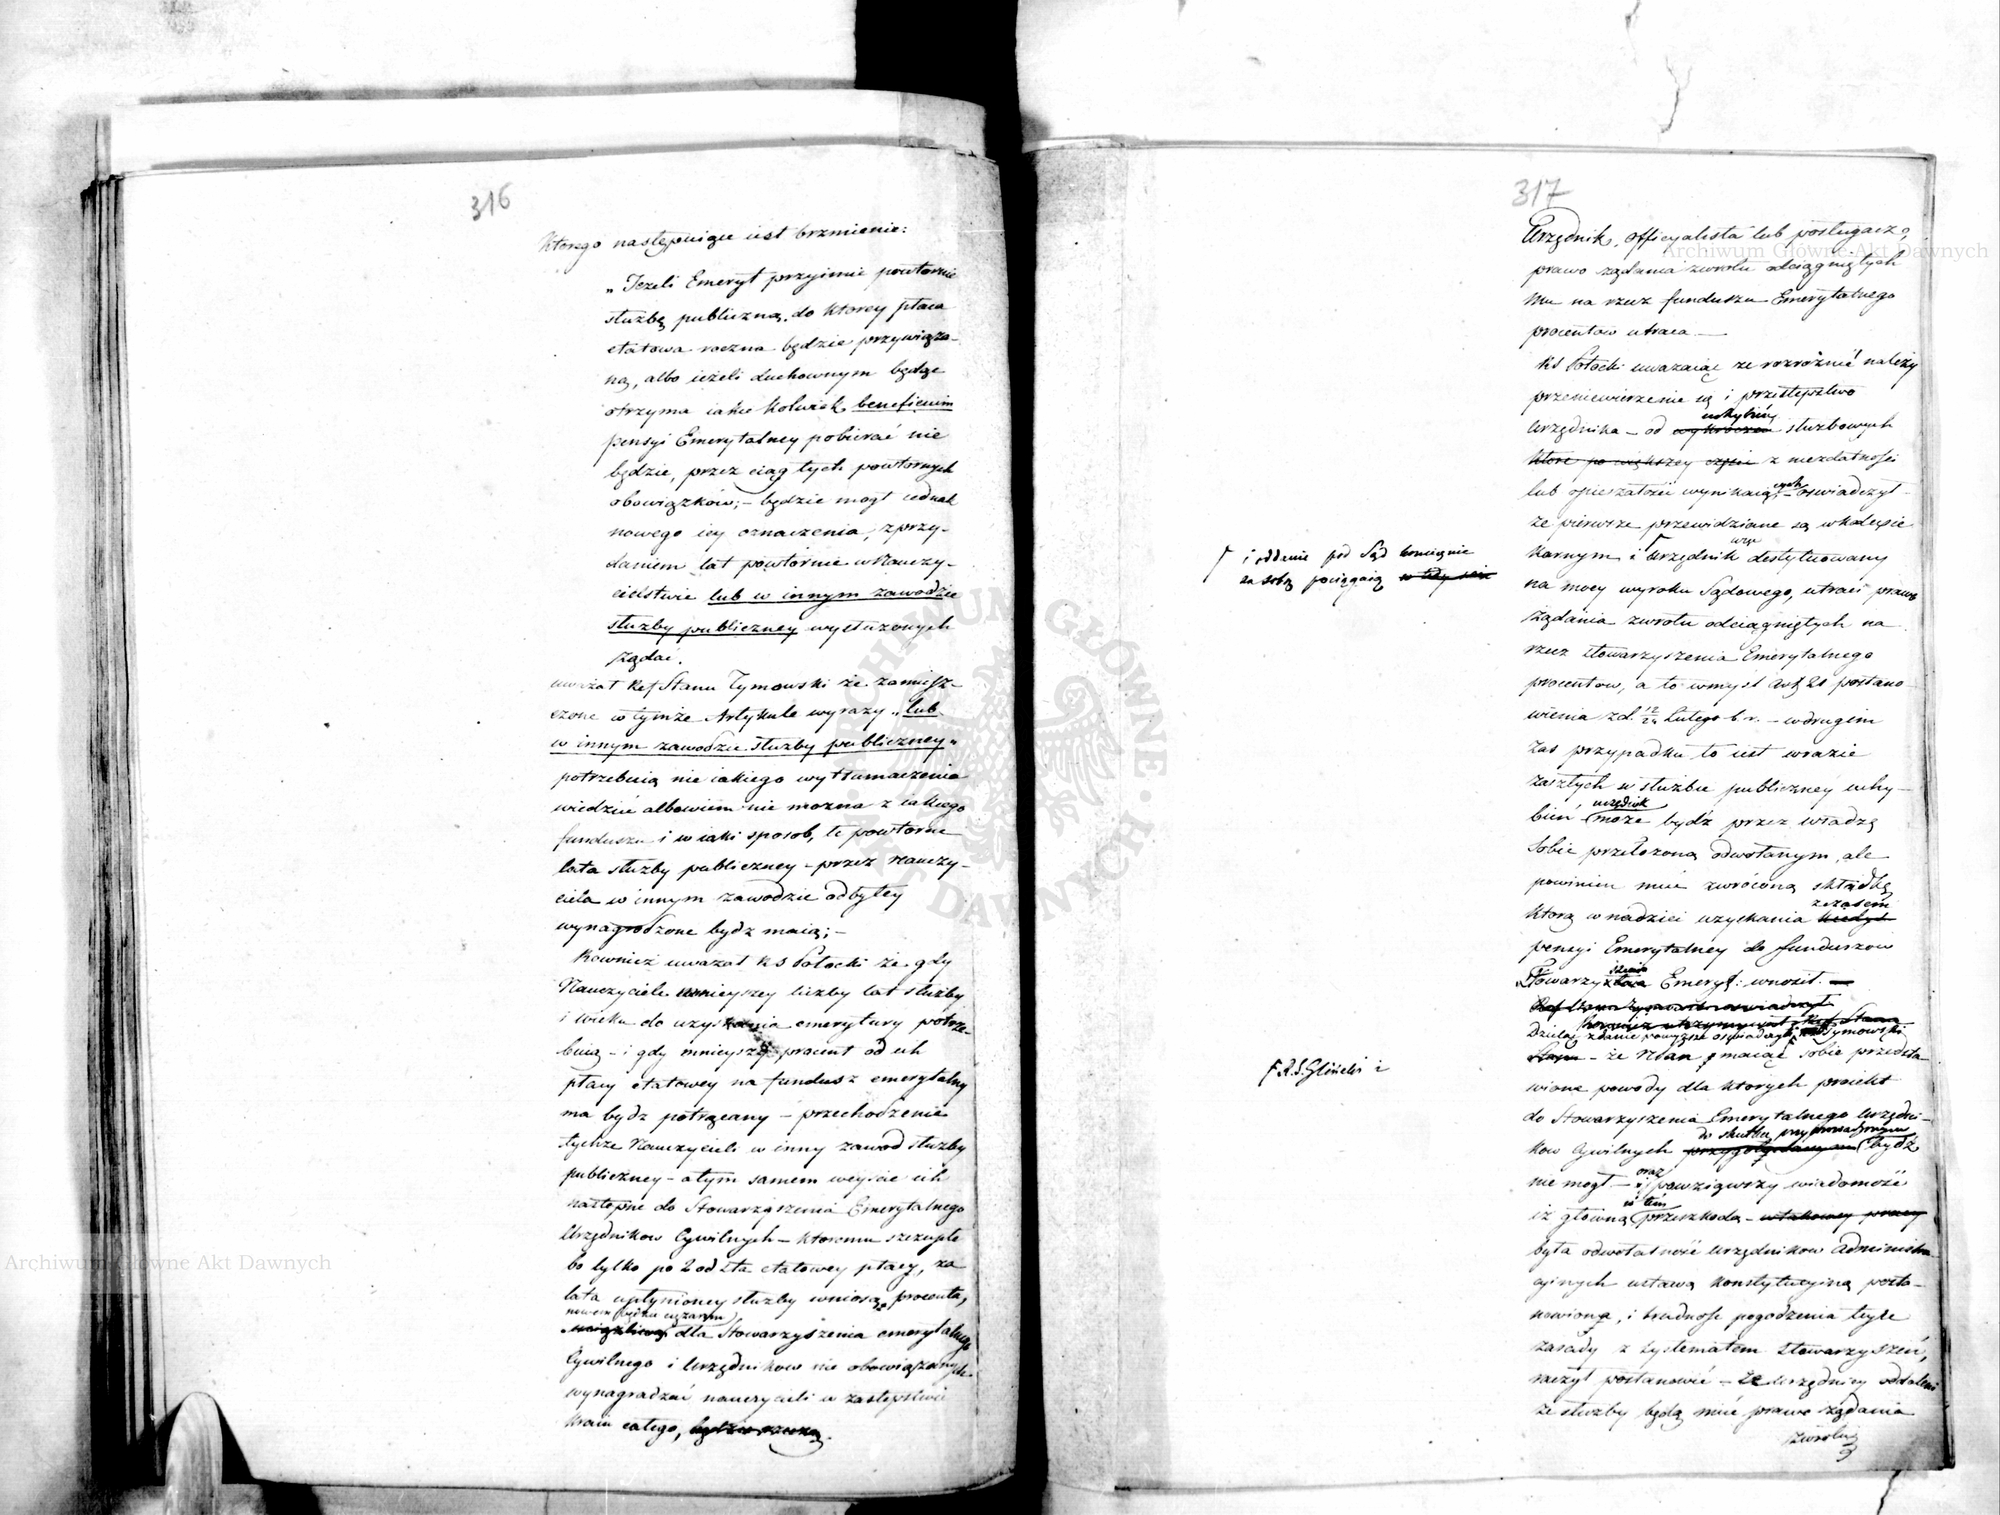 316
Ktorego następuiące iest brzmienie:
„Jeżeli Emeryt przyimie powtornie
służbę publiczną, do ktorey płaca
etatowa roczna będzie przywiąza-
ną, albo ieżeli duchownym będąc
otrzyma iakie kolwiek beneficium
pensyi Emerytalney pobierać nie
będzie, przez ciąg tych powtornych
obowiązków; – będzie mogł iednak
nowego iey oznaczenia, z przy-
daniem lat powtórnie w Nauczy-
cielstwie lub w innym zawodzie
służby publiczney wysłużonych
żądać.
uważał Ref Stanu Tymowski że zamiesz-
czone w tymże Artykule wyrazy „lub
w innym zawodzie służby publiczney„
potrzebuią nie iakiego wytłumaczenia
wiedzieć albowiem nie można z iakiego
funduszu i w iaki sposob, te powtorne
lata służby publiczney – przez Nauczy-
ciela w innym zawodzie odbyłey
wynagrodzone bydz maią; –
Rownież uważał R S Potocki że gdy
Nauczyciele mnieyszey liczby lat służby
i wieku do uzyskania emerytury potrze-
buią – i gdy mnieyszy procent od ich
płacy etatowey na fundusz emerytalny
ma bydz potrącany – przechodzenie
tychże Nauczycieli w inny zawod służby
publiczney – a tym samem weyscie ich
następne do Stowarzyszenia Emerytalnego
Urzędnikow Cywilnych – ktoremu szczupłe
bo tylko po 2 od sta etatowey płacy, za
lata upłynioney służby wniosą procenta,
ciężarem
dla Stowarzyszenia emerytalnego
Cywilnego i Urzędnikow nie obowiązanych
wynagradzać nauczycieli w zastępstwie
kraiu całego,
317
Urzędnik, Officyalista lub posługacz,
prawo żądania zwrotu odciągniętych
mu na rzecz funduszu Emerytalnego
procentow utraca –
RS Potocki uważaiąc że rozróżnić należy
przeniewierzenie się i przestępstwo
uchybień
Urzędnika – od wykroczeń służbowych
które po większey części z niezdatności
lub opieszałości wynikaiących – oświadczył –
że pierwsze przewidziane są w kodexie
więc
karnym i Urzędnik destytuowany
i oddanie pod Sąd koniecznie
za sobą pociągaią
na mocy wyroku Sądowego, utraci prawo
żądania zwrotu odciągniętych na
rzecz stowarzyszenia Emerytalnego
procentow, a to w myśl art 21 postano-
wienia z d. 12/24 Lutego b. r. – w drugim
zas przypadku to iest w razie
zaszłych w służbie publiczney uchy-
urzędnik
bień może bydz przez władzę
sobie przełożoną odwołanym, ale
powinien mieć zwróconą składkę
z czasem
ktorą w nadziei uzyskania kiedyś
pensyi Emerytalney do funduszow
Stowarzyszenia Emeryt: wnosił. –
Dzieląc zdanie powyższe oświadczyli Tymowski
F. R. S. Gliński i
– że maiąc sobie przedsta-
wione powody dla ktorych proiekt
do Stowarzyszenia Emerytalnego Urzędni-
do skutku przyprowadzonym
kow Cywilnych bydź
oraz
nie mogł – i powziąwszy wiadomość
w tem
iż głowną przeszkodą –
była odwołalność Urzędnikow administra-
cyinych ustawą konstytucyiną posta-
nowioną, i trudność pogodzenia teyże
zasady z systematem stowarzyszeń,
raczył postanowić – że Urzędnicy oddaleni
ze służby będą mieć prawo żądania
zwrotu
Archiwum Główne Akt Dawnych
Archiwum Główne Akt Dawnych
ARCHIWUM GŁÓWNE AKT DAWNYCH